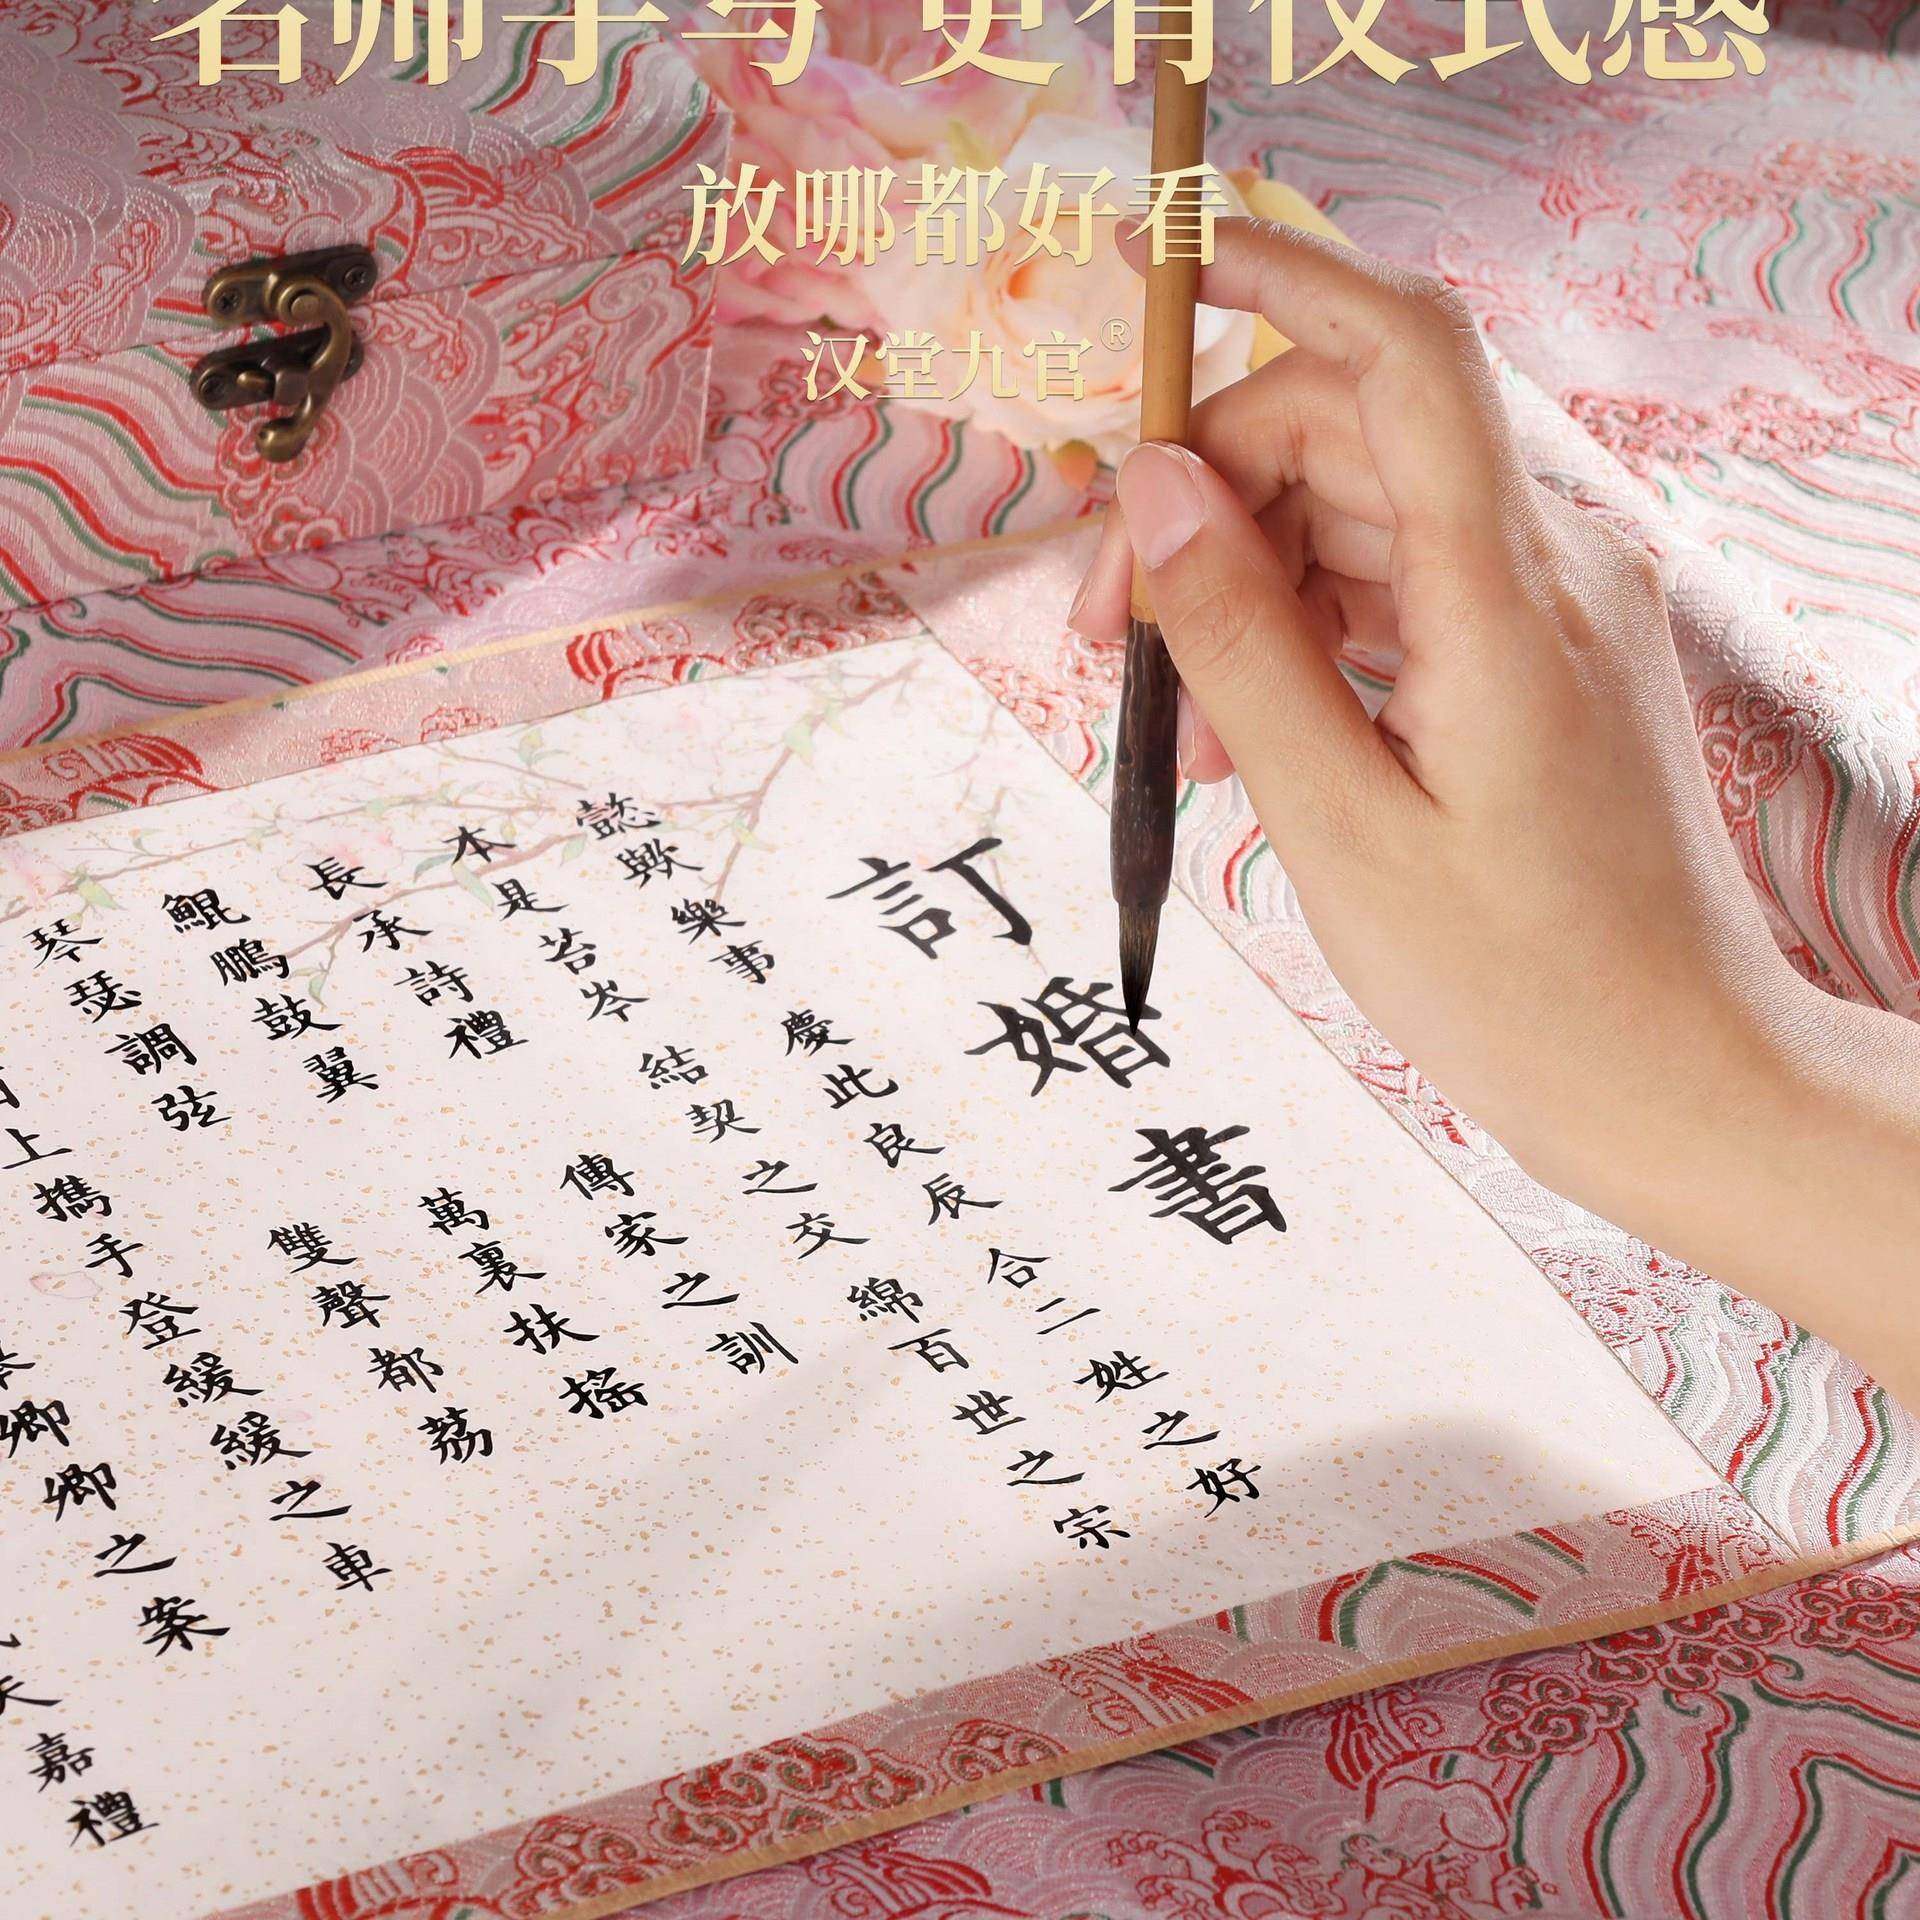 名师手写 更有仪式感
放哪都好看
汉堂九官®
訂婚書
懿歟樂事 慶此良辰 合二姓之好
本是苔岑 結契之交 綿百世之宗
長承詩禮 傳家之訓
鯤鵬鼓翼 萬裏扶搖
琴瑟調弦 雙聲都荔
上攜手 登緩緩之車
卿卿之案
嘉禮